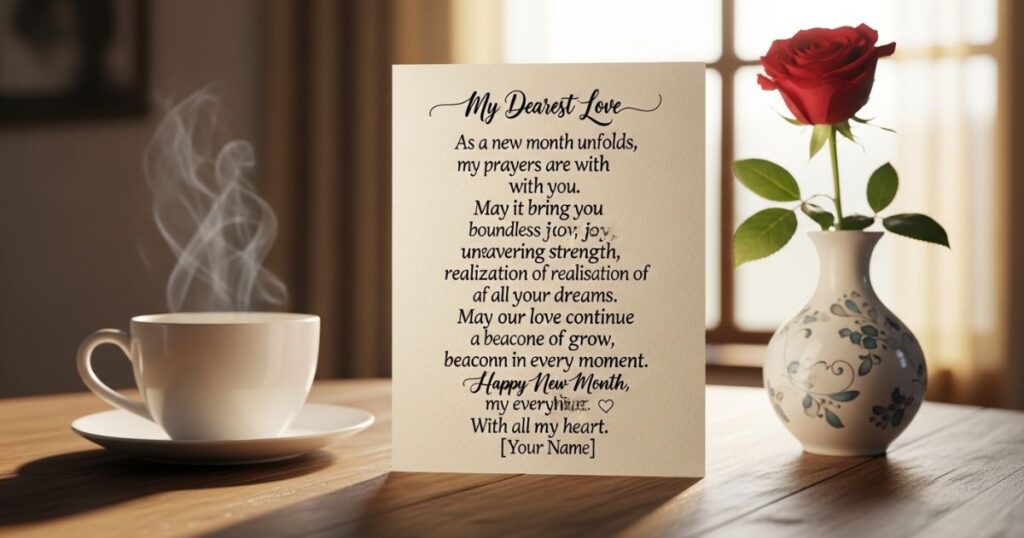 My Dearest Love
As a new month unfolds,
my prayers are with
with you.
May it bring you
boundless joy, joy,
unavering strength,
realization of realisation of
af all your dreams.
May our love continue
a beacone of grow,
beaconn in every moment.
Happy New Month,
my
With all my heart.
[Your Name]